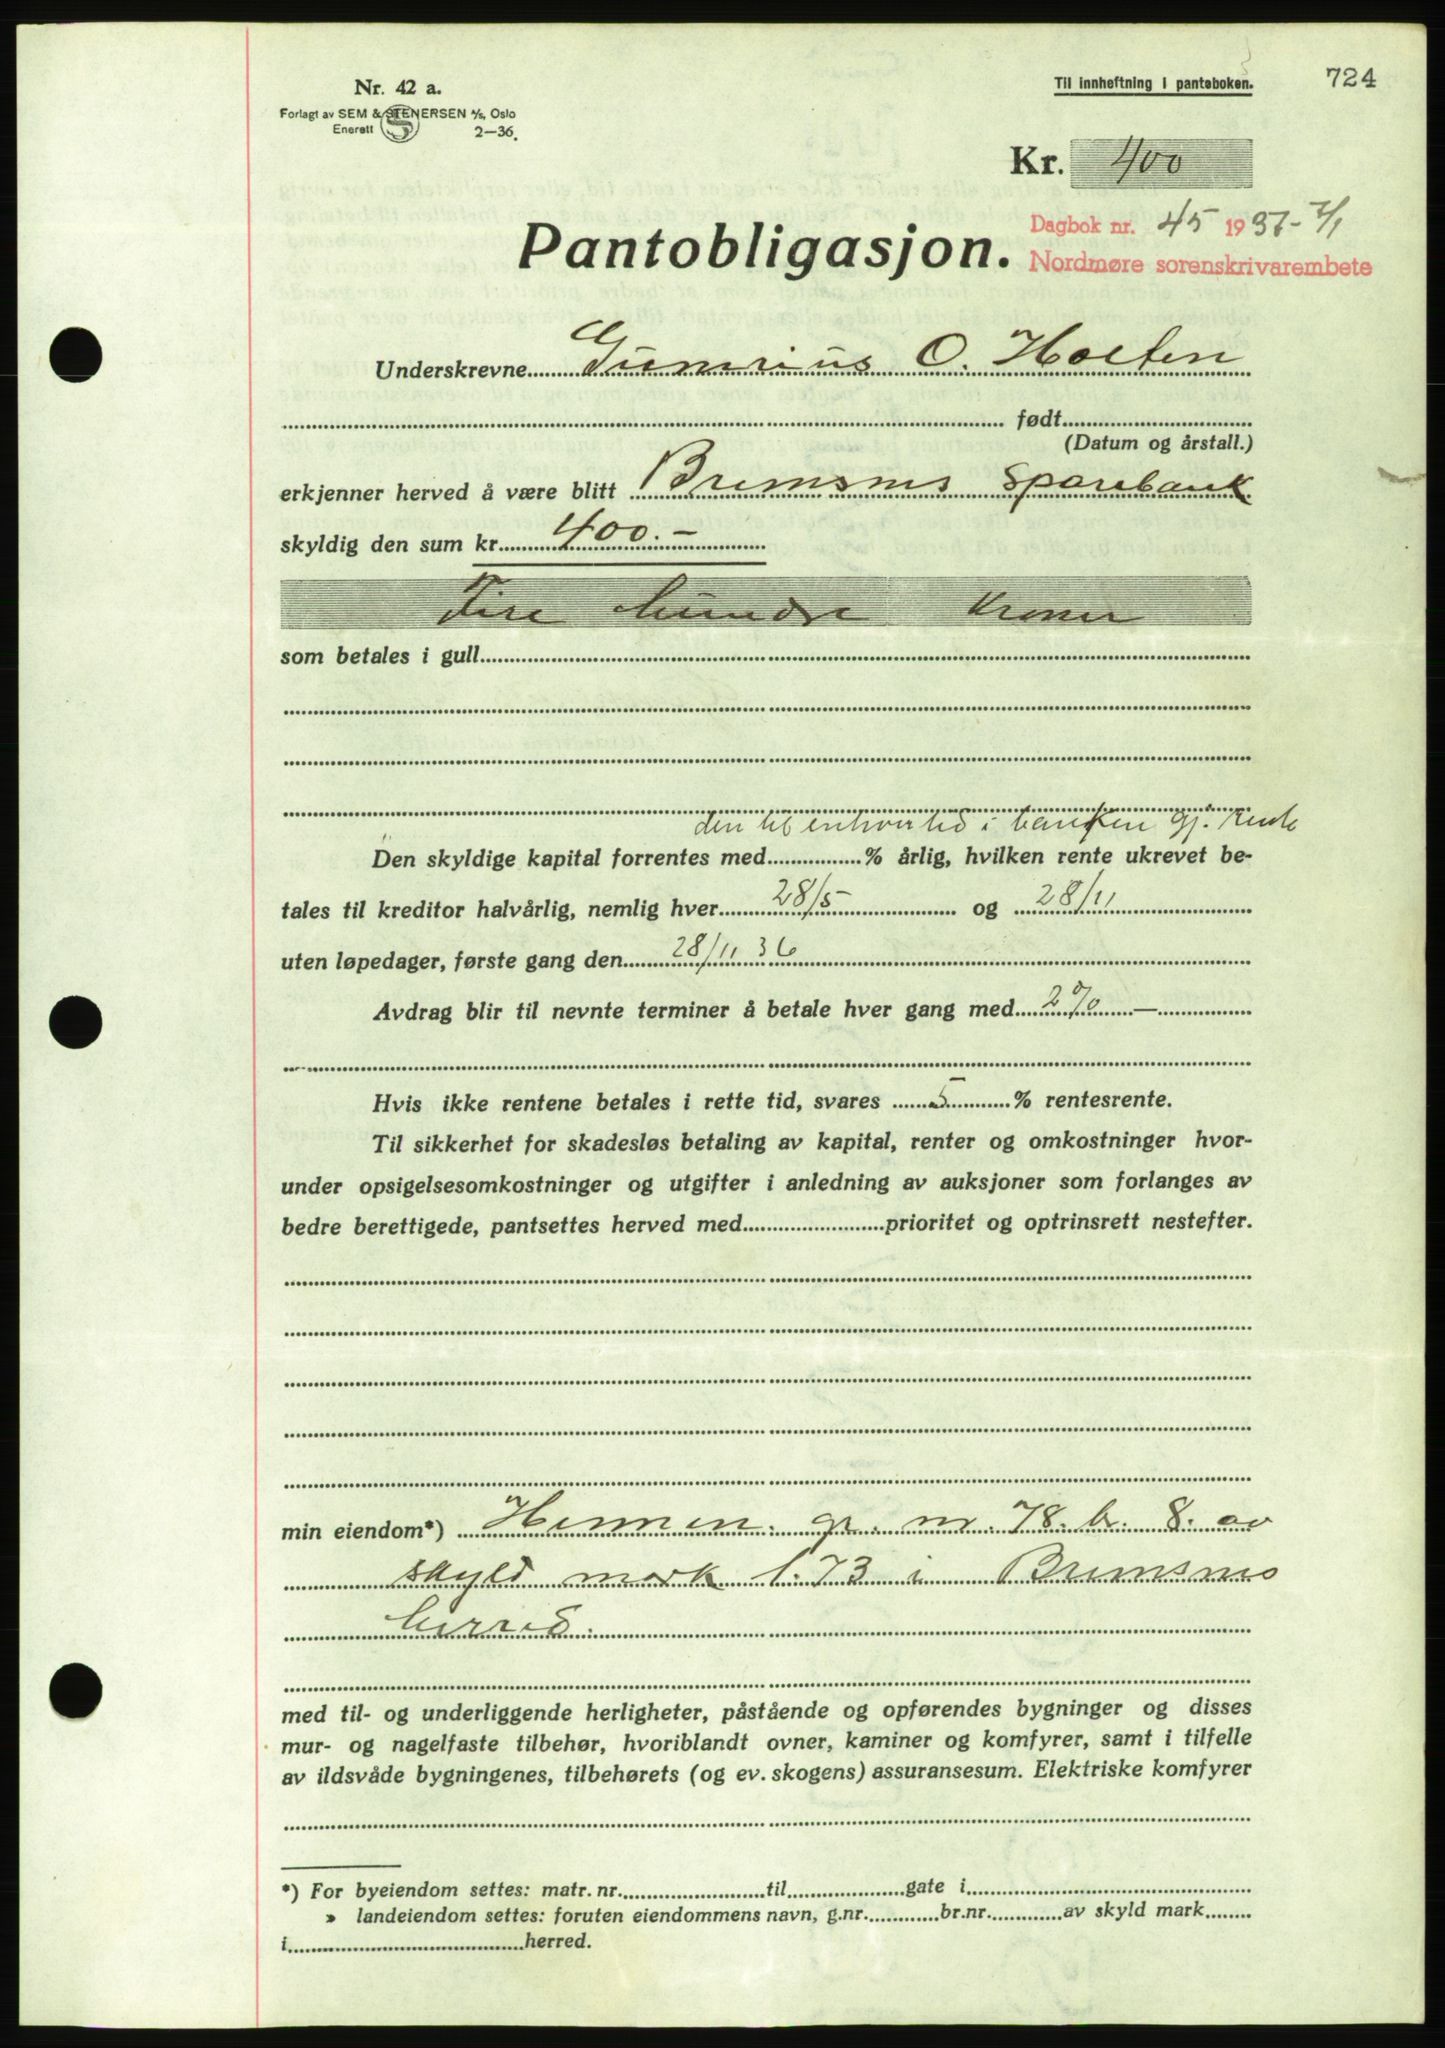 Nr. 42 a.
Forlagt av SEM & STENERSEN A/S, Oslo
Enerett S 2—36.
Til innheftning i panteboken.
724
Kr. 400
Pantobligasjon.
Dagbok nr. 45 1937 - 7/1
Nordmøre sorenskrivarembete
Underskrevne O. Holten
født
(Datum og årstall.)
erkjenner herved å være blitt Bremsnes Sparebank
skyldig den sum kr. 400.-
Fire hundre Kroner
som betales i gull
den til enhver tid i banken gj. rente
Den skyldige kapital forrentes med % årlig, hvilken rente ukrevet be-
tales til kreditor halvårlig, nemlig hver 28/5 og 28/11
uten løpedager, første gang den 28/11 36
Avdrag blir til nevnte terminer å betale hver gang med 2% —
Hvis ikke rentene betales i rette tid, svares 5 % rentesrente.
Til sikkerhet for skadesløs betaling av kapital, renter og omkostninger hvor-
under opsigelsesomkostninger og utgifter i anledning av auksjoner som forlanges av
bedre berettigede, pantsettes herved med prioritet og optrinsrett nestefter.
min eiendom*) Hennen. gr. nr. 78. br. 8. av
skyld mark 1.73 i Bremsnes
herred.
med til- og underliggende herligheter, påstående og opførendes bygninger og disses
mur- og nagelfaste tilbehør, hvoriblandt ovner, kaminer og komfyrer, samt i tilfelle
av ildsvåde bygningenes, tilbehørets (og ev. skogens) assuransesum. Elektriske komfyrer
*) For byeiendom settes: matr. nr. til gate i
» landeiendom settes: foruten eiendommens navn, g.nr. br.nr. av skyld mark
i herred.